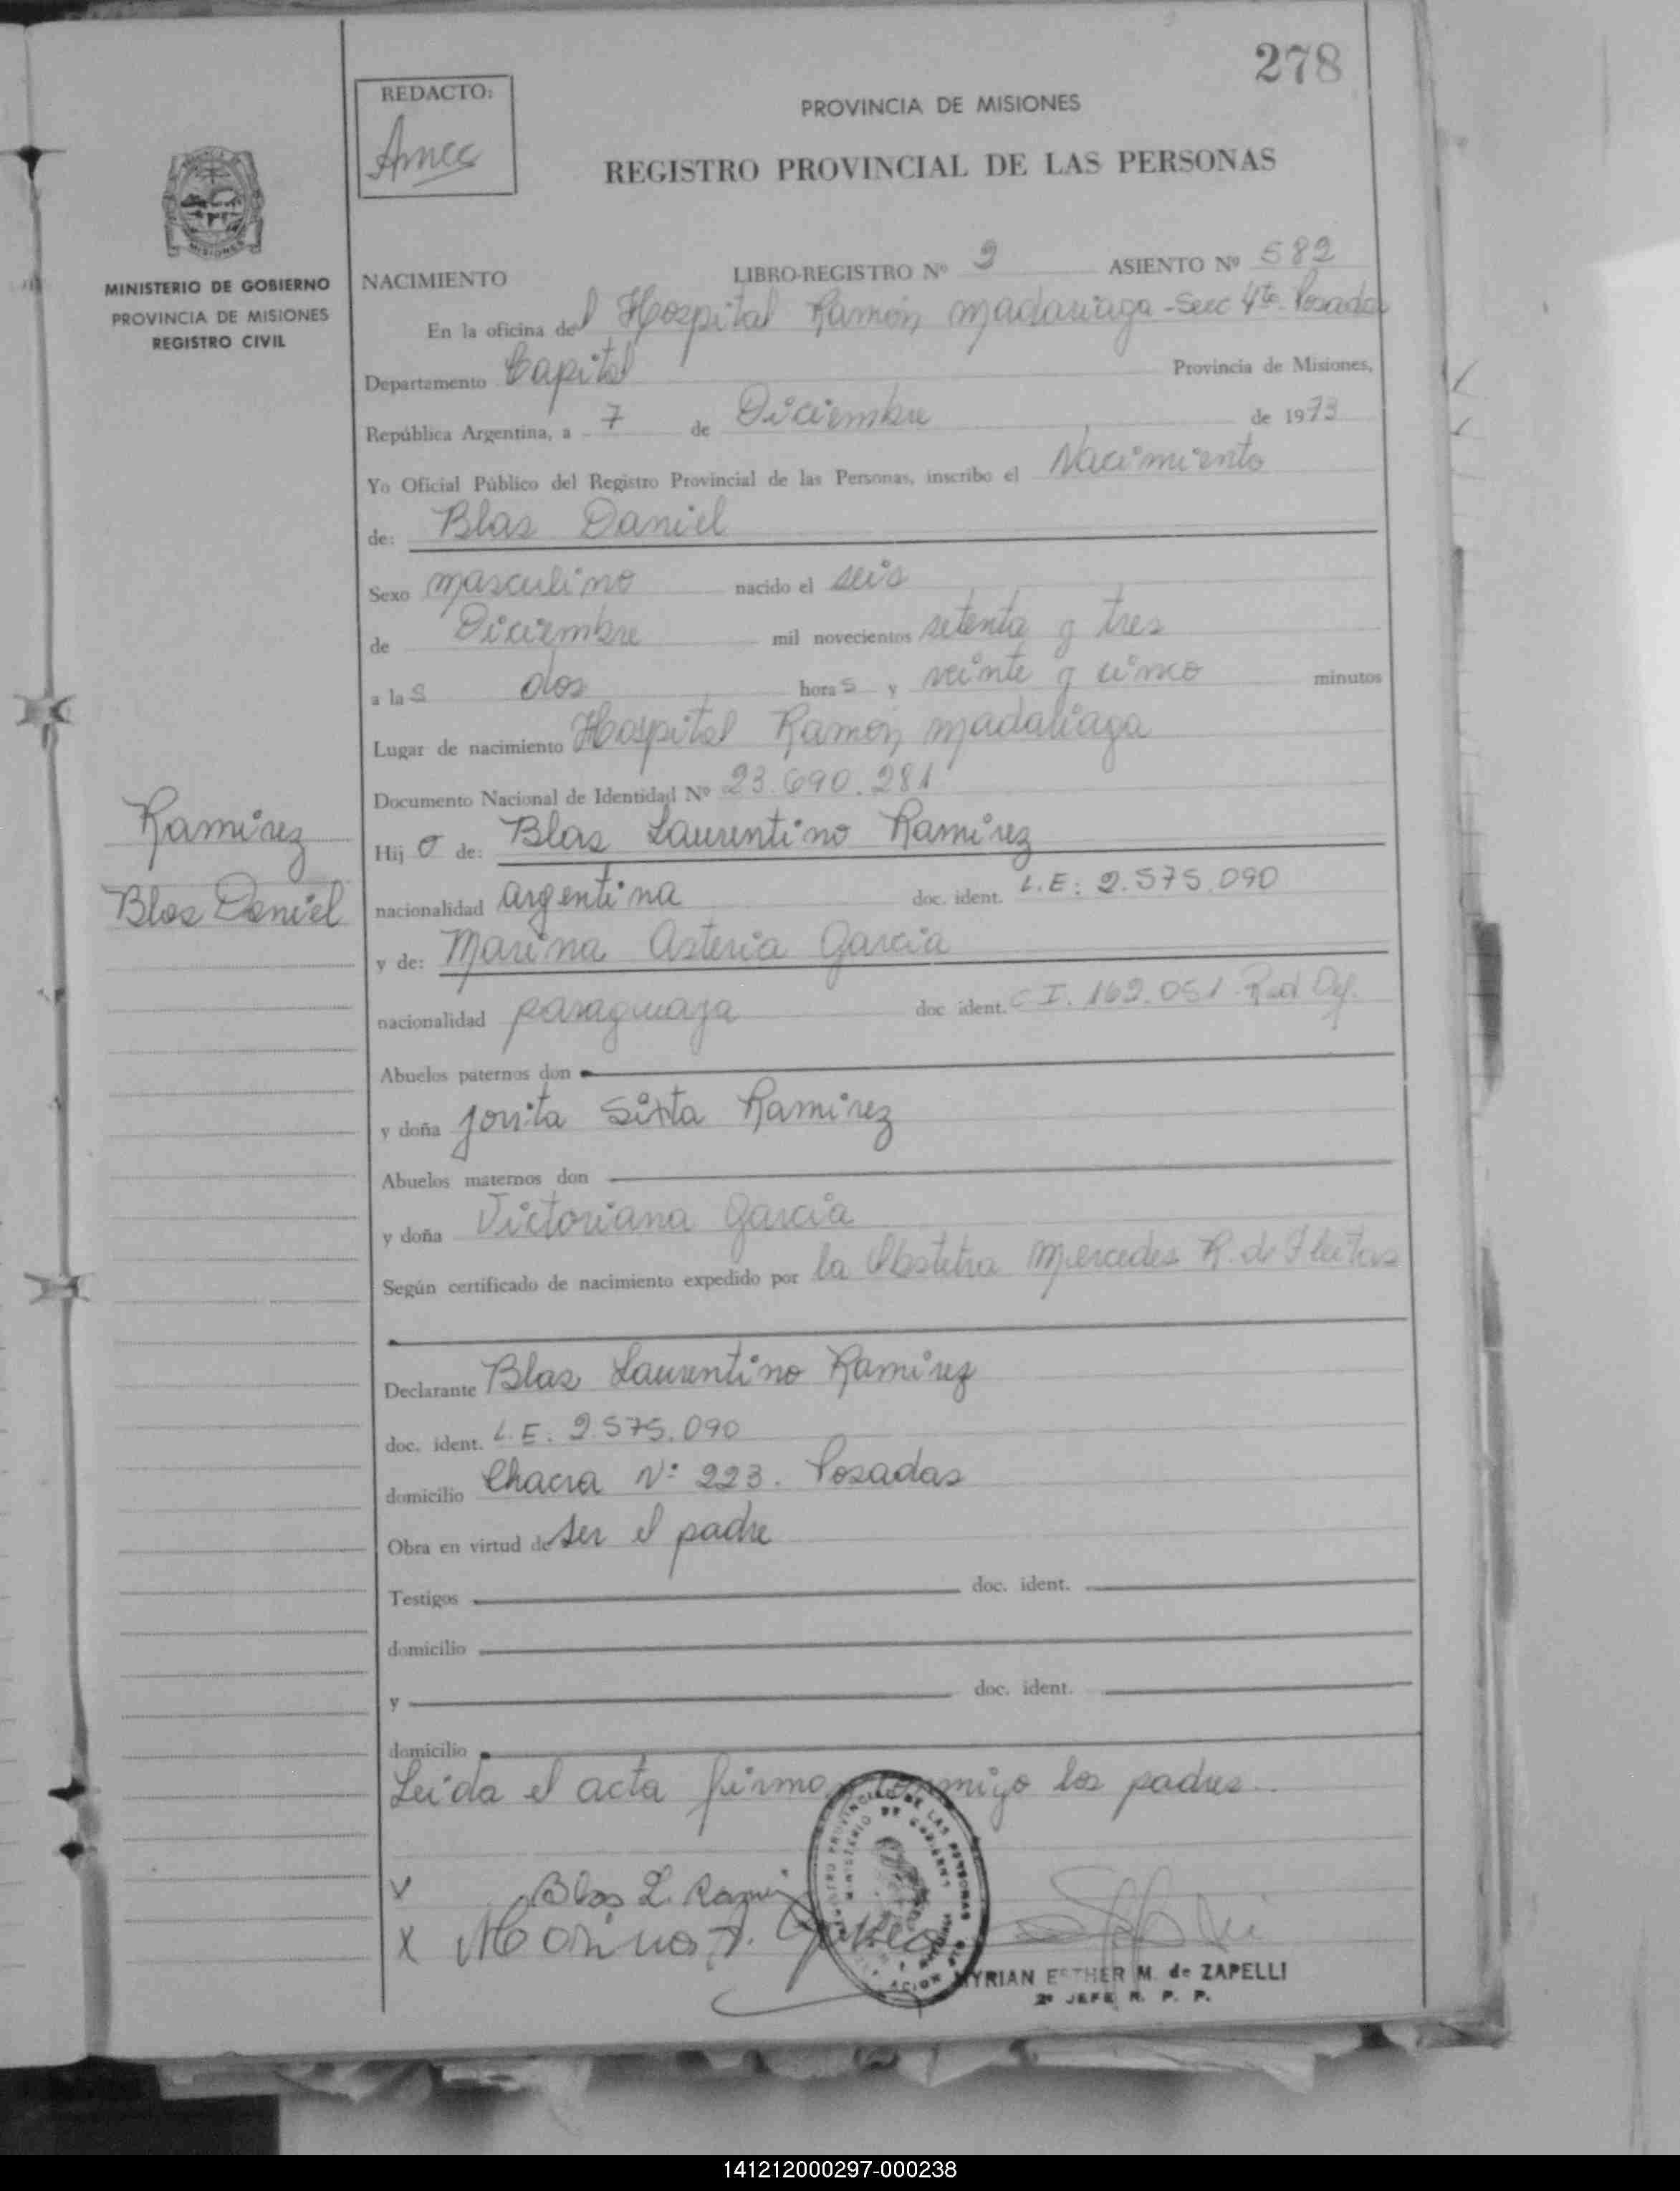 278
REDACTO:
PROVINCIA DE MISIONES
REGISTRO PROVINCIAL DE LAS PERSONAS
MISIONES
MINISTERIO DE GOBIERNO
PROVINCIA DE MISIONES
REGISTRO CIVIL
NACIMIENTO LIBRO-REGISTRO Nº 2 ASIENTO Nº 582
En la oficina del Hospital Ramón Madariaga - Secc 4ta. Posadas
Departamento Capital Provincia de Misiones,
República Argentina, a 7 de Diciembre de 1973
Yo Oficial Público del Registro Provincial de las Personas, inscribo el Nacimiento
de: Blas Daniel
Sexo masculino nacido el seis
de Diciembre mil novecientos setenta y tres
a las dos horas y veinte y cinco minutos
Lugar de nacimiento Hospital Ramón Madariaga
Documento Nacional de Identidad Nº 23.690.281
Ramirez
Blas Daniel
Hijo de: Blas Laurentino Ramirez
nacionalidad argentina doc. ident. L.E: 2.575.090
y de: Marina Asteria Garcia
nacionalidad paraguaya doc ident. C I. 162.051
Abuelos paternos don
y doña Jovita Sixta Ramirez
Abuelos maternos don
y doña Victoriana Garcia
Según certificado de nacimiento expedido por la Obstetra Mercedes R. de Fleitas
Declarante Blas Laurentino Ramirez
doc. ident. L.E. 2.575.090
domicilio Chacra Nº 223. Posadas
Obra en virtud de ser el padre
Testigos doc. ident.
domicilio
y doc. ident.
domicilio
Leida el acta firman conmigo los padres.
Blas L. Ramirez
X Marina A. Garcia
MYRIAN ESTHER M. de ZAPELLI
2º JEFE R. P. P.
141212000297-000238